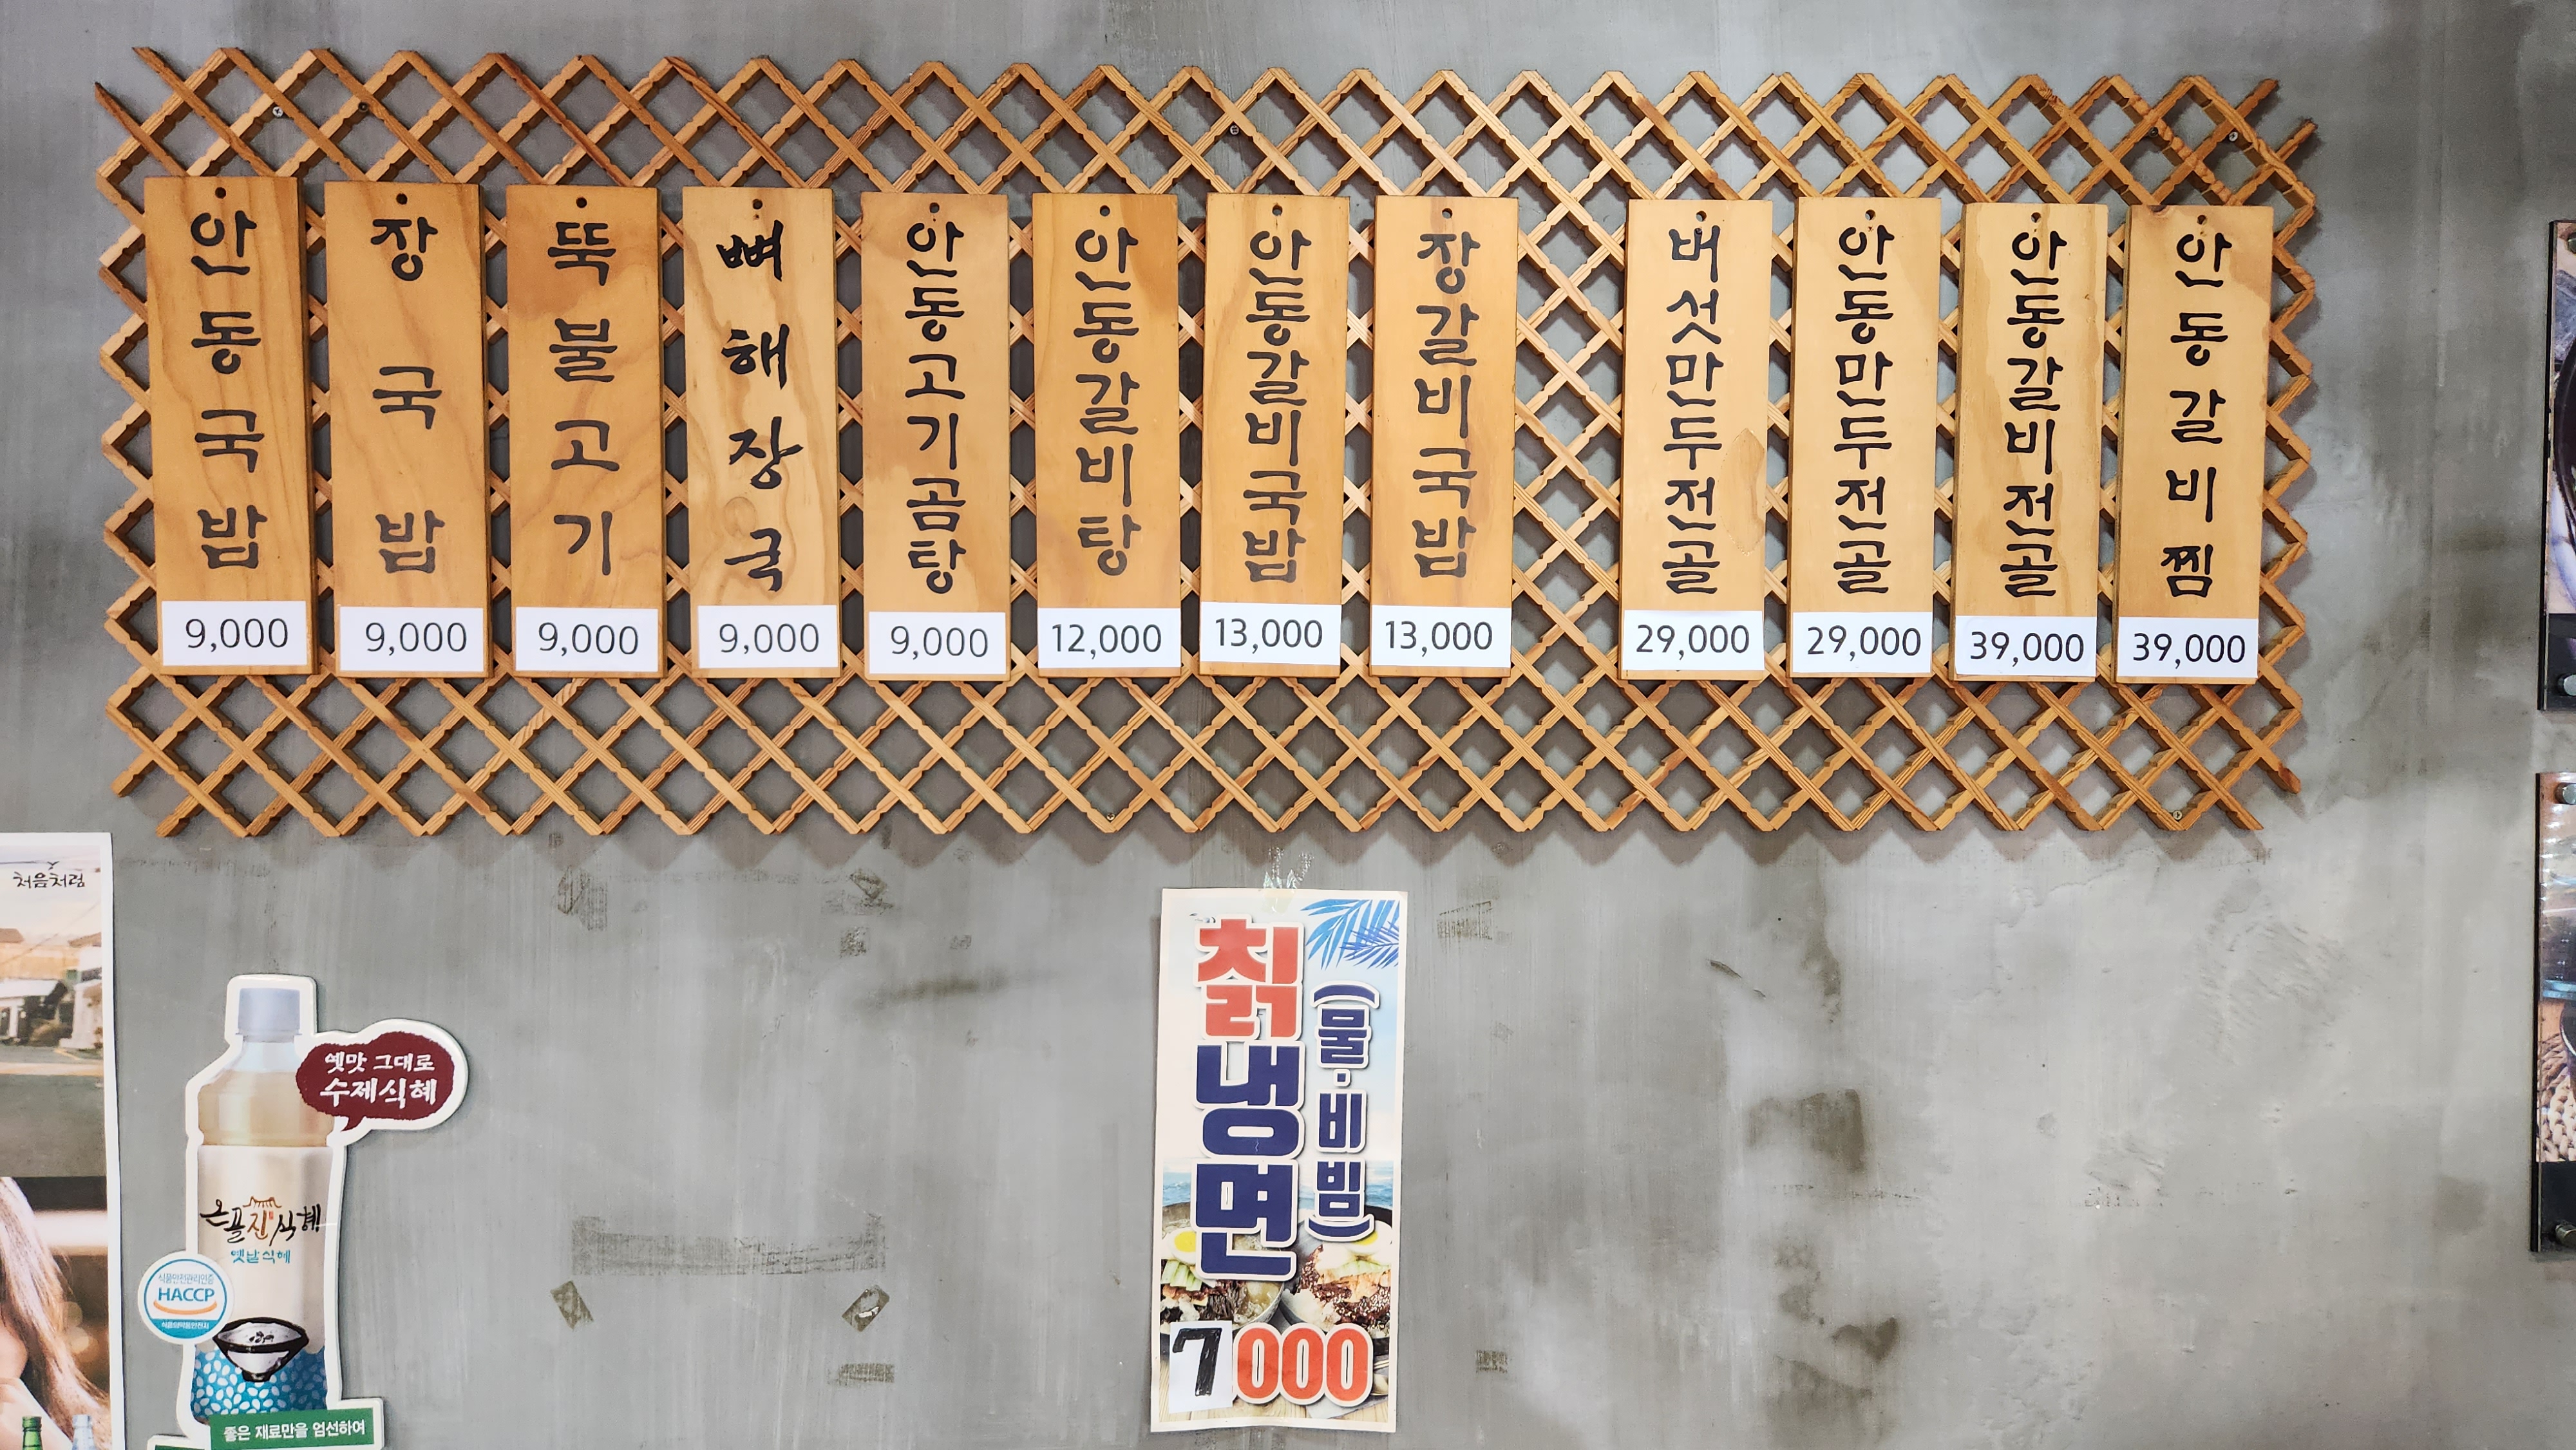 안동국밥
9,000
장국밥
9,000
뚝불고기
9,000
뼈해장국
9,000
안동고기곰탕
9,000
안동갈비탕
12,000
안동갈비국밥
13,000
장갈비국밥
13,000
버섯만두전골
29,000
안동만두전골
29,000
안동갈비전골
39,000
안동갈비찜
39,000
처음처럼
옛맛 그대로
수제식혜
온풀진식혜
옛날식혜
식품안전관리인증
HACCP
식품의약품안전처
좋은 재료만을 엄선하여
칡냉면
(물·비빔)
7000